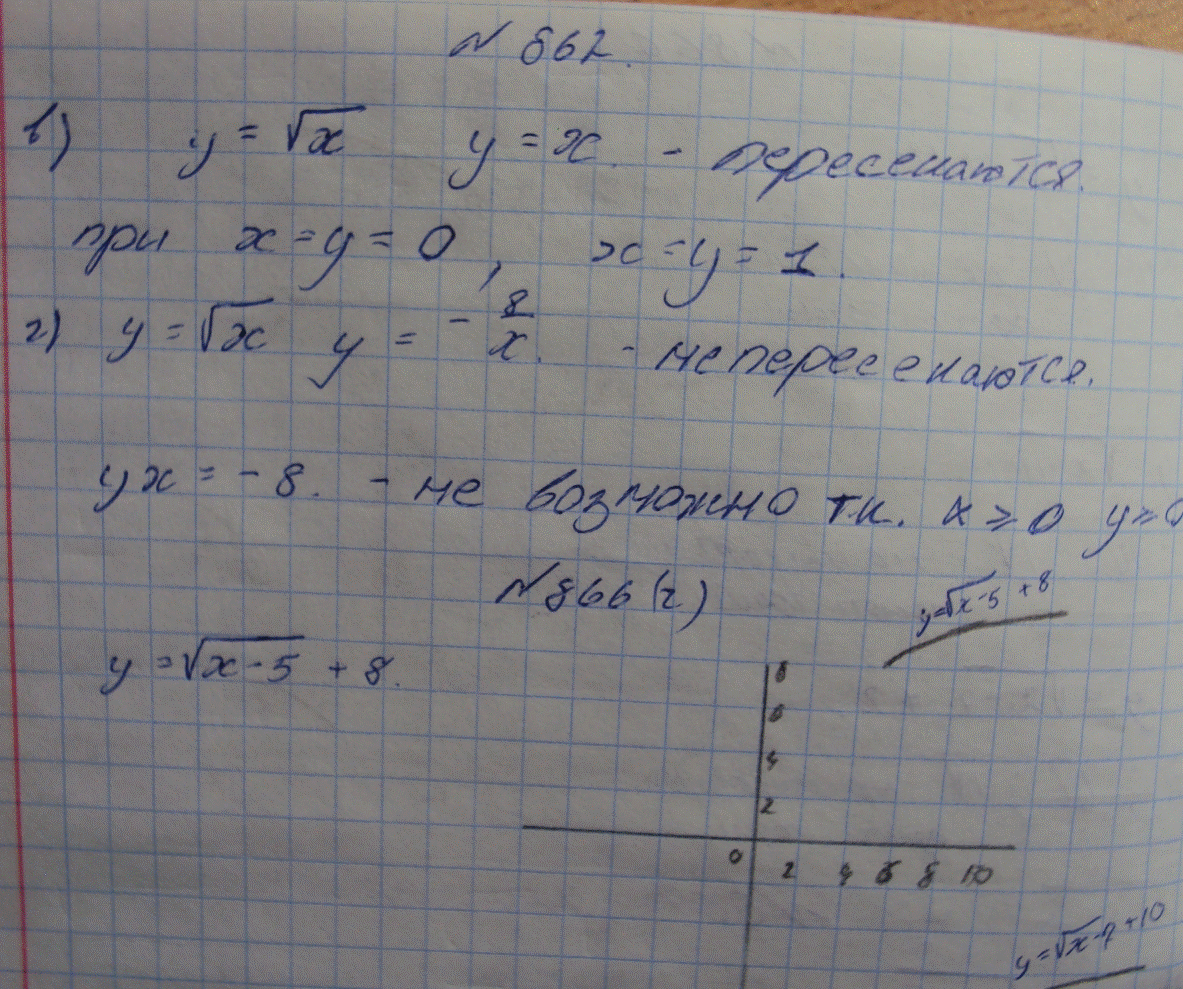 № 862.
в) y = √x y = x. - пересекаются.
при x = y = 0, x = y = 1.
г) y = √x y = - 8/x. - не пересекаются.
yx = - 8. - не возможно т.к. x ≥ 0 y ≥ 0
№ 866 (г)
y = √x-5 + 8
y = √x - 5 + 8.
8
6
4
2
0 2 4 6 8 10
y = √x-7 + 10